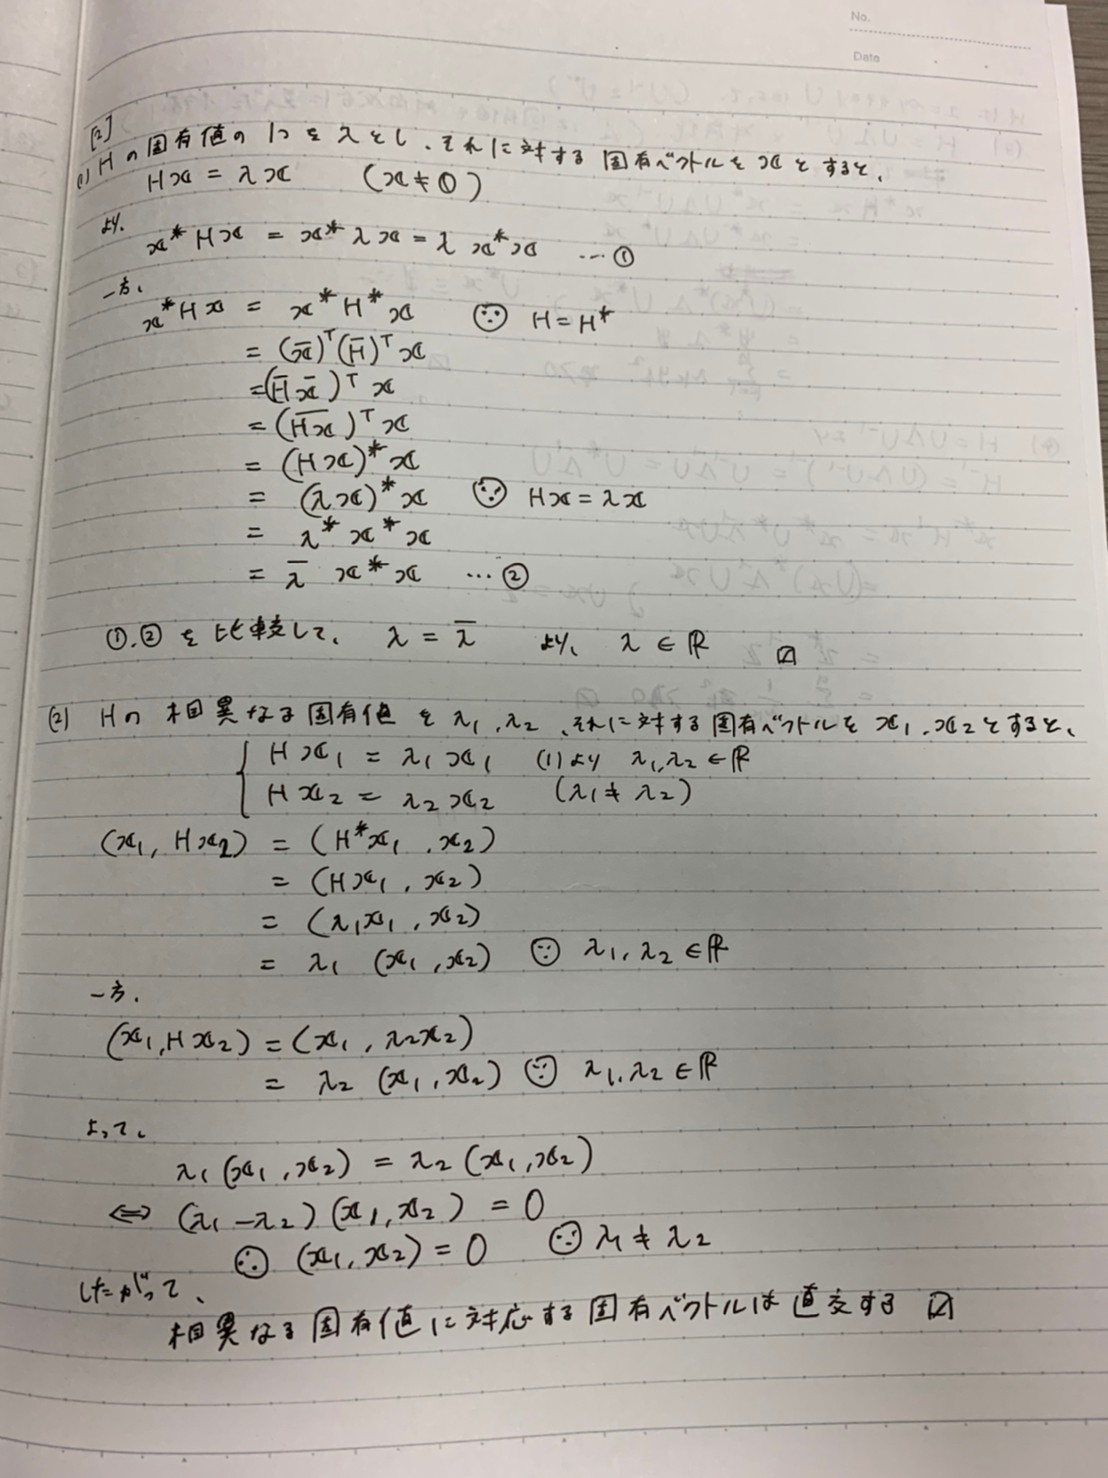 No.
Date
[2]
(1) Hの固有値の1つをλとし、それに対する固有ベクトルをxとすると、
Hx = λx (x ≠ 0)
より、
x*Hx = x*λx = λ x*x …①
一方、
x*Hx = x*H*x ∵ H = H*
= (x̄)ᵀ(H̄)ᵀx
= (H̄ x̄)ᵀ x
= (H̅x̅)ᵀ x
= (Hx)* x
= (λx)* x ∵ Hx = λx
= λ* x* x
= λ̄ x* x …②
①,②を比較して、 λ = λ̄ より、 λ ∈ ℝ ☑
(2) Hの相異なる固有値をλ₁,λ₂、それに対する固有ベクトルをx₁,x₂とすると、
Hx₁ = λ₁x₁ (1)より λ₁,λ₂ ∈ ℝ
Hx₂ = λ₂x₂ (λ₁ ≠ λ₂)
(x₁, Hx₂) = (H*x₁, x₂)
= (Hx₁, x₂)
= (λ₁x₁, x₂)
= λ₁ (x₁, x₂) ∵ λ₁,λ₂ ∈ ℝ
一方、
(x₁, Hx₂) = (x₁, λ₂x₂)
= λ₂ (x₁, x₂) ∵ λ₁,λ₂ ∈ ℝ
よって、
λ₁(x₁, x₂) = λ₂(x₁, x₂)
⇔ (λ₁ - λ₂)(x₁, x₂) = 0
∴ (x₁, x₂) = 0 ∵ λ₁ ≠ λ₂
したがって、
相異なる固有値に対応する固有ベクトルは直交する ☑